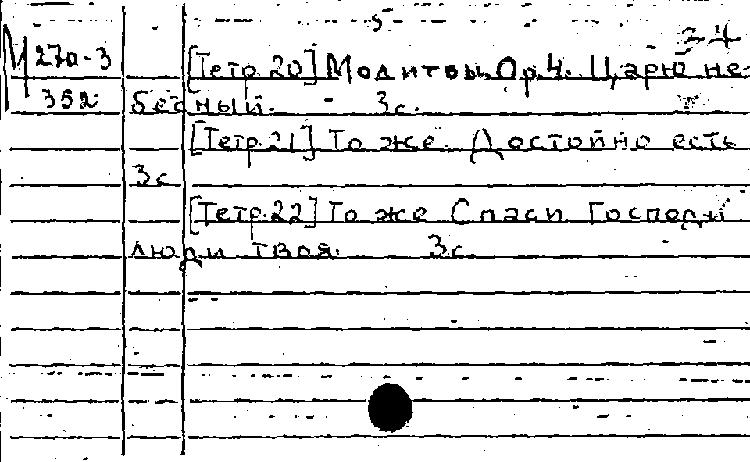 34
М 27а-3
352
[Тетр. 20] Молитвы. Ор. 4. Царю не-
бесный. - 3с.
[Тетр. 21] То же. Достойно есть
3с
[Тетр. 22] То же Спаси Господи
люди твоя. 3с.